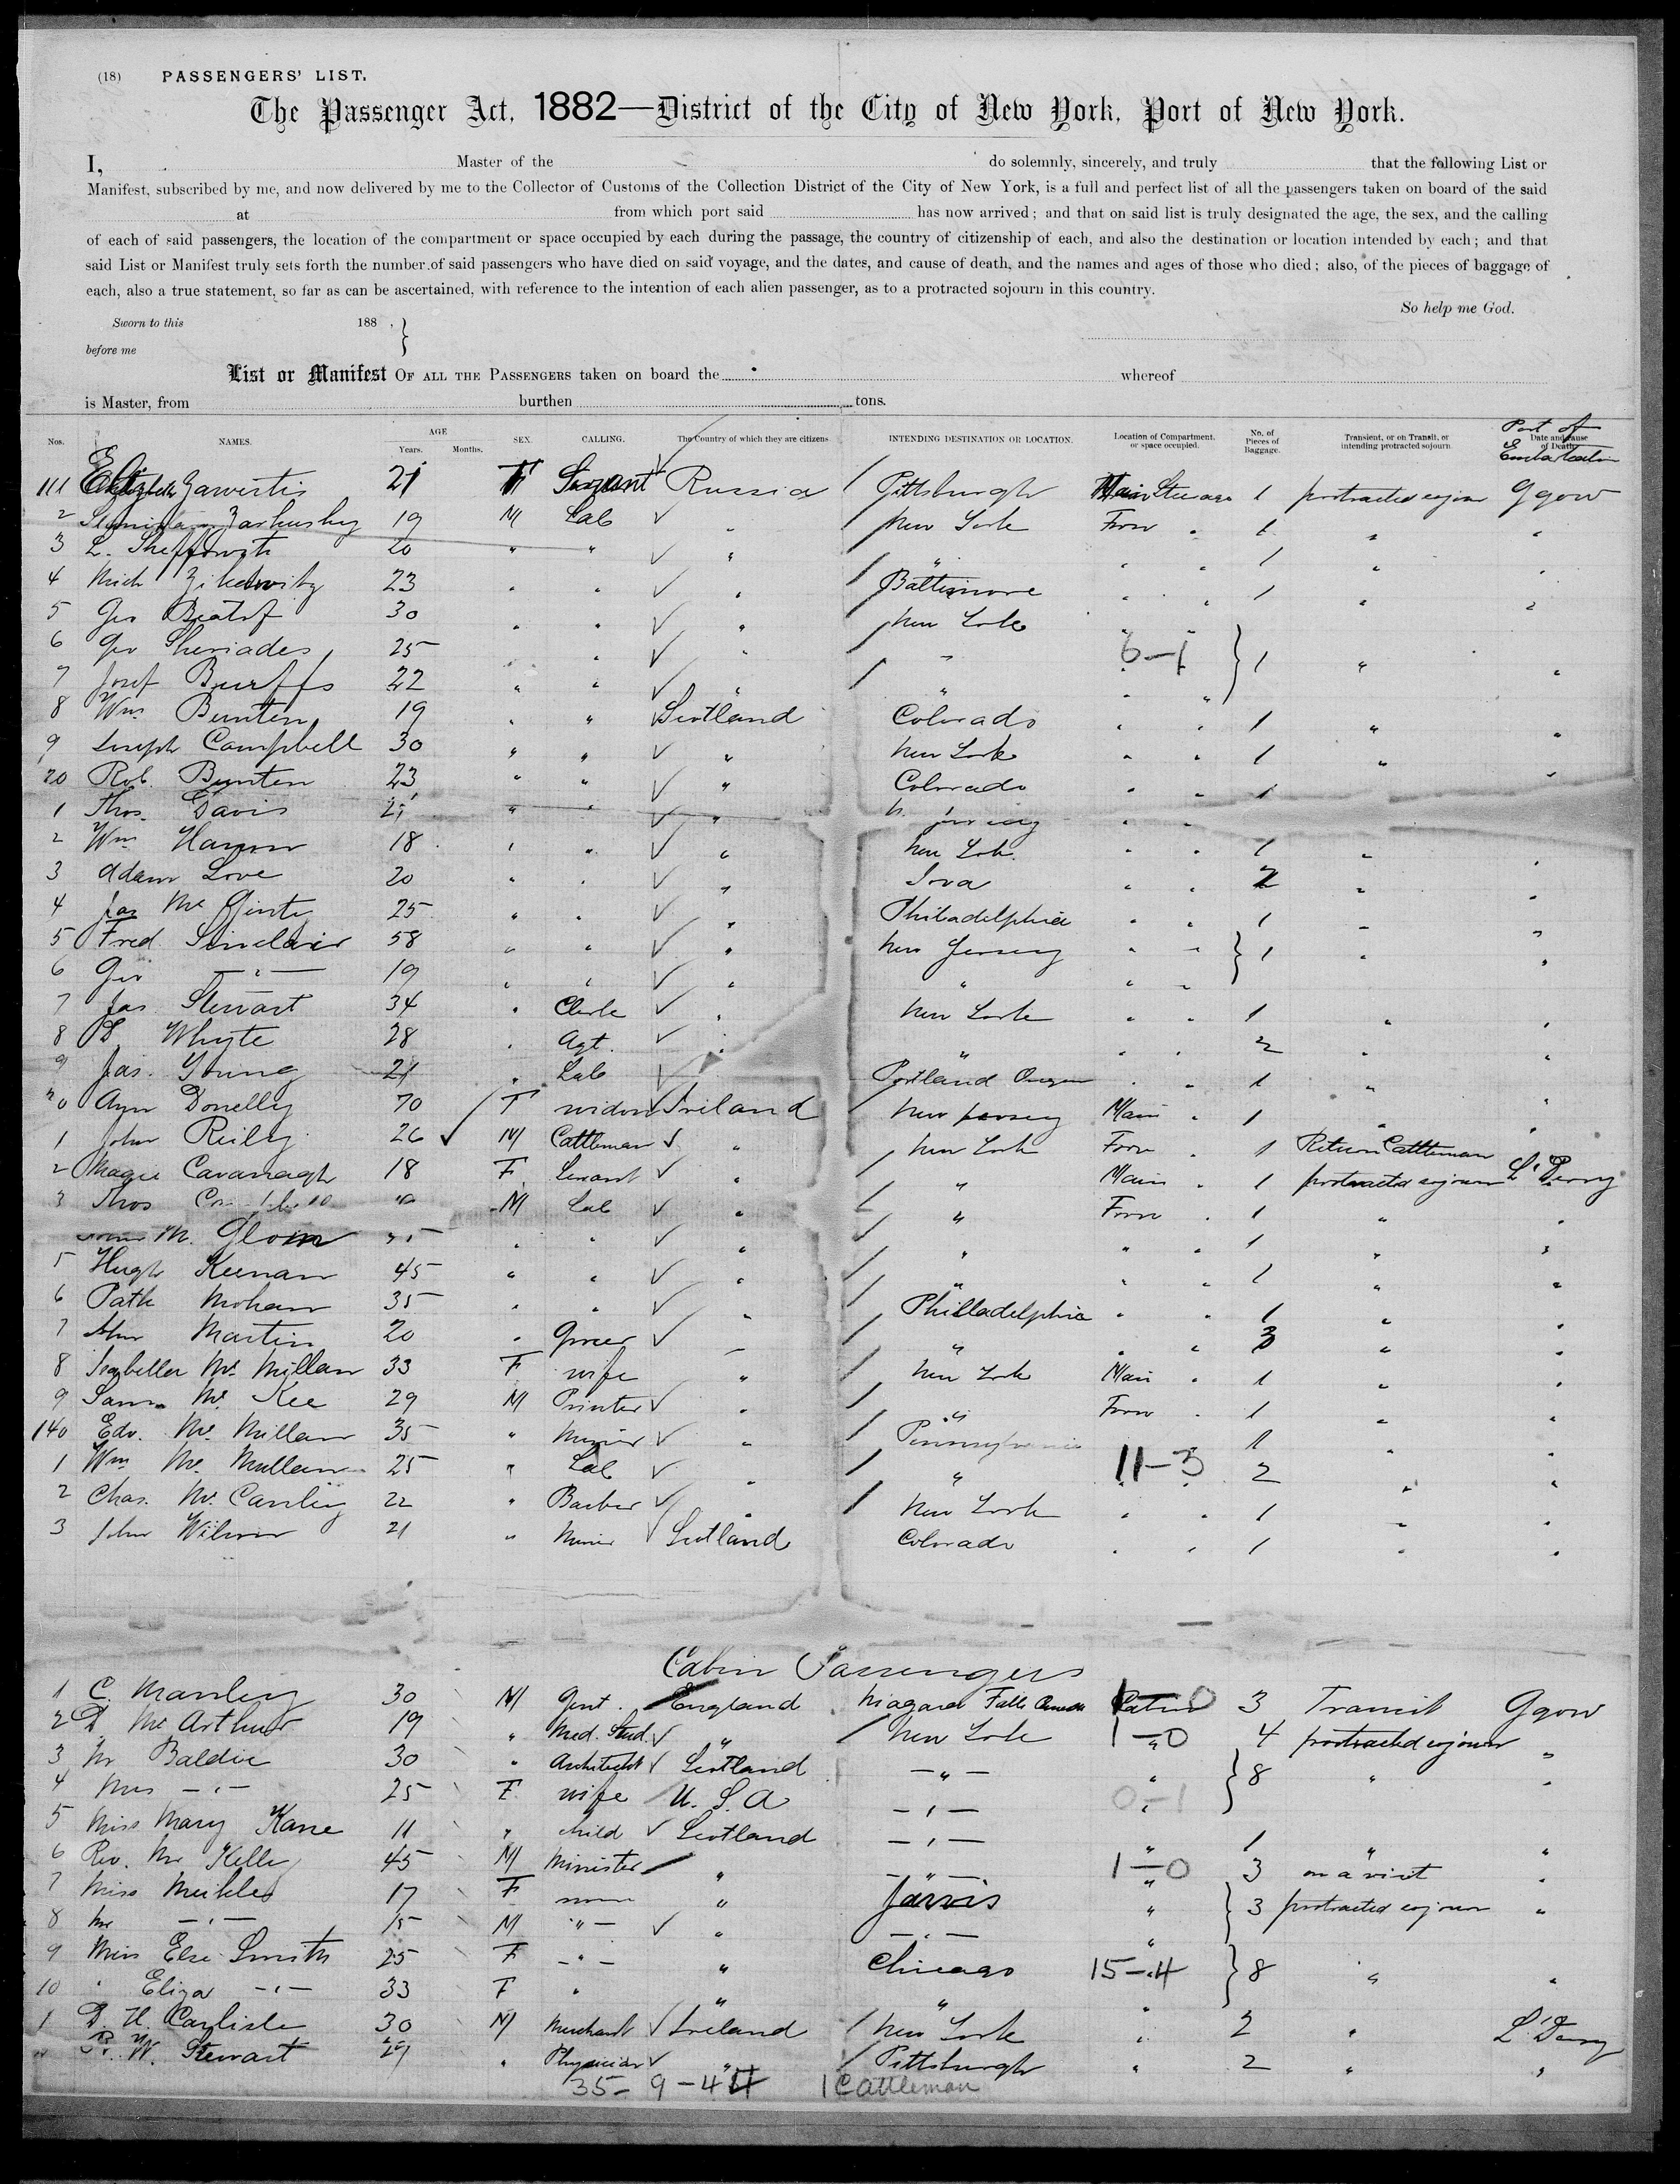 (18) PASSENGERS' LIST.
The Passenger Act, 1882—District of the City of New York, Port of New York.
I, Master of the do solemnly, sincerely, and truly that the following List or
Manifest, subscribed by me, and now delivered by me to the Collector of Customs of the Collection District of the City of New York, is a full and perfect list of all the passengers taken on board of the said
at from which port said has now arrived; and that on said list is truly designated the age, the sex, and the calling
of each of said passengers, the location of the compartment or space occupied by each during the passage, the country of citizenship of each, and also the destination or location intended by each; and that
said List or Manifest truly sets forth the number of said passengers who have died on said voyage, and the dates, and cause of death, and the names and ages of those who died; also, of the pieces of baggage of
each, also a true statement, so far as can be ascertained, with reference to the intention of each alien passenger, as to a protracted sojourn in this country.
So help me God.
Sworn to this 188 ,
before me
List or Manifest OF ALL THE PASSENGERS taken on board the whereof
is Master, from burthen tons.
Nos. NAMES. AGE Years. Months. SEX. CALLING. The Country of which they are citizens INTENDING DESTINATION OR LOCATION. Location of Compartment, or space occupied. No. of Pieces of Baggage. Transient, or on Transit, or intending protracted sojourn. Date and Cause of Death. Port of Embarkation
111 Elizabeth 21 F Servant Russia / Pittsburgh Main Steerage 1 protracted sojour Ggow
2 19 M Lab ✓ " / New York Forw " 1 " "
3 L. 20 " " ✓ " / " " " 1 " "
4 Mich 23 " " ✓ " / Baltimore " " 1 " "
5 Geo 30 " " ✓ " / New York " "
6 Geo Sheriades 25 " " ✓ " / " 6-1 1 " "
7 Josef 22 " " ✓ " " " "
8 Wm Bunten 19 " " ✓ Scotland Colorado " " 1 " "
9 Joseph Campbell 30 " " ✓ " New York " " 1 "
20 Rob. Bunten 23 " " ✓ " Colorado " " 1 "
1 Thos. Davis 21 " " ✓ " N. Jersey " "
2 Wm 18 " " ✓ " New York " " 1 " "
3 Adam Love 20 " " ✓ " Iova " " 2 " "
4 Jas Mc Ginty 25 " " ✓ " Philadelphia " " 1 " "
5 Fred Sinclair 58 " " ✓ " New Jersey " " 1 " "
6 Geo —"— 19 " " ✓ " " " "
7 Jas Stewart 34 " Clerk ✓ " New York " " 1 " "
8 D. Whyte 28 " Agt. ✓ " " " " 2 " "
9 Jas. Young 21 " Lab ✓ Portland Oregon " " 1 "
30 Ann Donelly 70 F widow ✓ Ireland / New Jersey Main " 1 " "
1 John Reiley 26 ✓ M Cattleman ✓ " New York Forw " 1 Return Cattleman "
2 Magie Cavanagh 18 F Servant ✓ " / " Main " 1 protracted sojour L'Derry
3 Thos Campbell M Lab ✓ " / " Forw " 1 " "
" " ✓ " / " " " 1 " "
5 Hugh Keenan 45 " " ✓ " / " " " 1 " "
6 Patk Mohan 35 " " ✓ " / Philladelphia " " 1 " "
7 John Martin 20 " Grocer ✓ " / " " " 3 " "
8 Isabella Mc Millan 33 F wife " / New York Main " 1 " "
9 Saml Mc Kee 29 M Printer ✓ " / " Forw " 1 " "
140 Edw. Mc Millan 35 " Miner ✓ " / Pennsylvania 1 " "
1 Wm Mc Mullan 25 " Lab ✓ " / " 11-3 2 " "
2 Chas. Mc Canley 22 " Barber ✓ " / New York " " 1 " "
3 John Wilson 21 " Miner ✓ Scotland Colorado " " 1 " "
Cabin Passengers
1 C. Manley 30 M Gent. England Niagara Falls Canada Cabin 1-0 3 Transit Ggow
2 D. Mc Arthur 19 " Med. Stud. ✓ " / New York 1-0 4 protracted sojour "
3 Mr Baldie 30 " Architect ✓ Scotland —"— " 8 " "
4 Mrs —"— 25 F wife / U. S. A —"— 0-1
5 Miss Mary Kane 11 " child ✓ Scotland —"— " 1 " "
6 Rev. Mr Kelly 45 M Minister " —"— 1-0 3 on a visit "
7 Miss Meikle 17 F " Jarvis " 3 protracted sojour "
8 Mr —"— 15 M "— ✓ " —"— "
9 Miss Else Smith 25 F —"— " Chicago 15-4 8 " "
10 " Eliza —"— 33 F " " "
1 D. H. Carlisle 30 M Merchant ✓ Ireland / New York " 2 " L'Derry
R. W. Stewart 29 " Physician ✓ " / Pittsburgh " 2 " "
35- 9-44 1 Cattleman